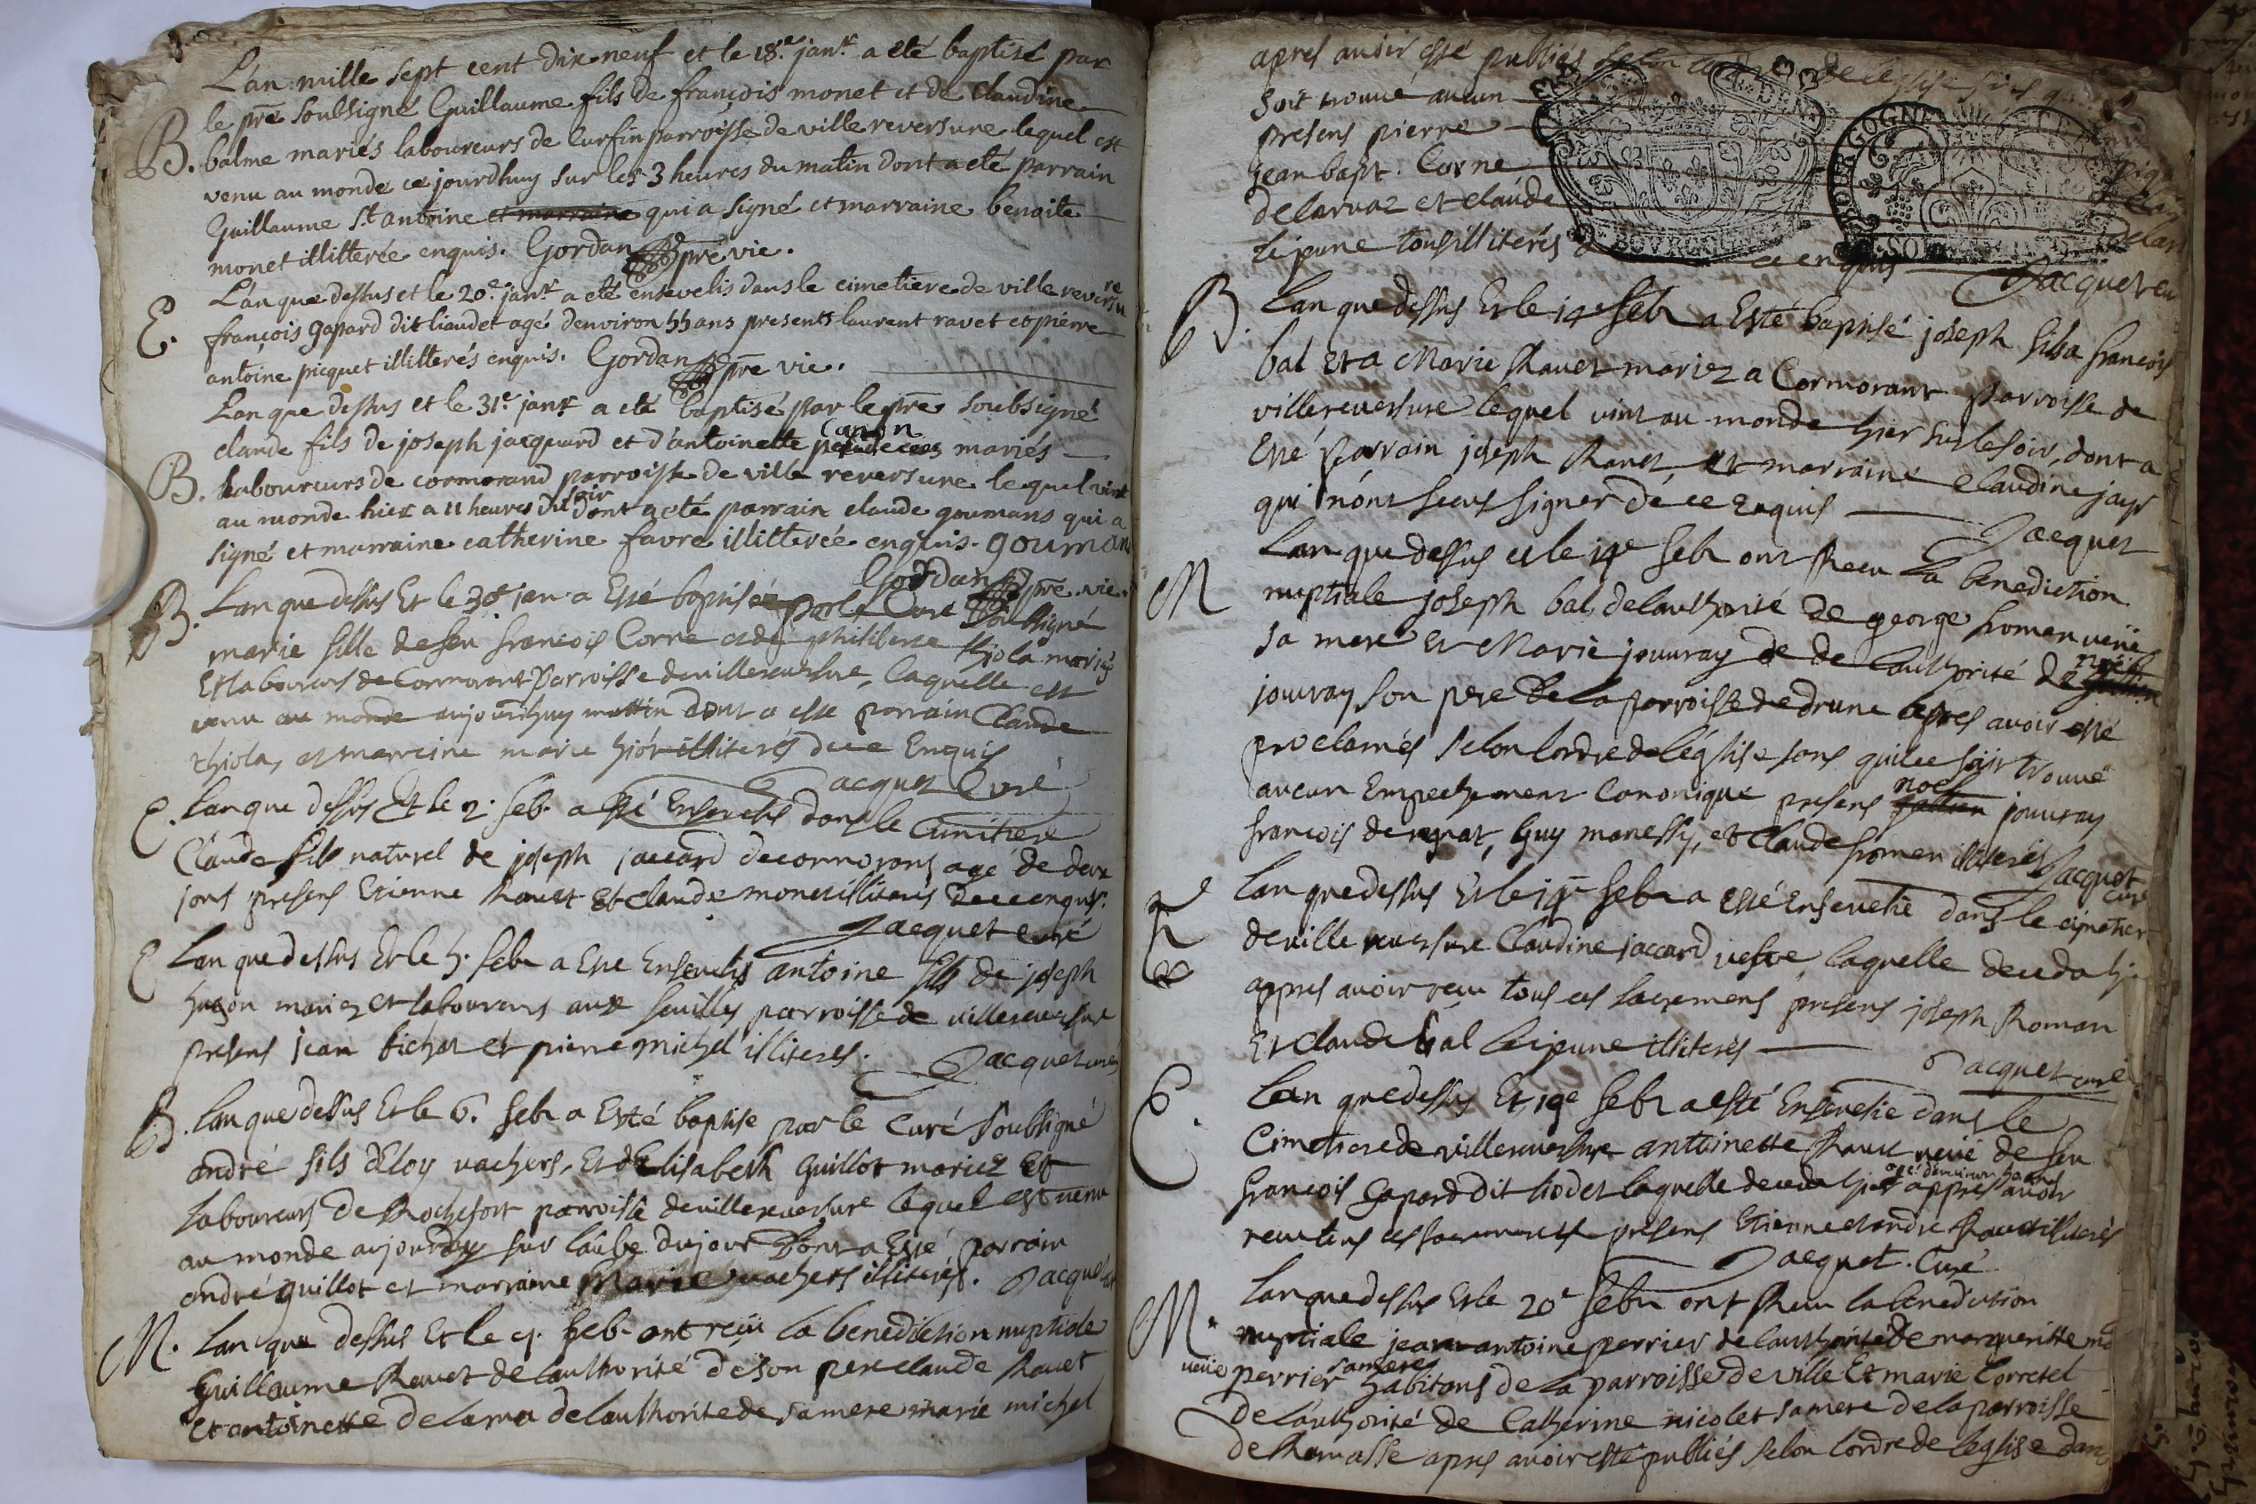 L'an mille sept cent dix neuf et le 18.e janr a eté baptisé par
le pre soubsigné Guillaume fils de françois monet et de Claudine
B. balme mariés laboureurs de Curfin parroisse de ville reversure lequel est
venu au monde ce jourdhuy sur les 3 heures du matin dont a eté parrain
Guillaume st antoine et marraine qui a signé et marraine benoite
monet illitterée enquis. Gordan pre vic.
L'an que dessus et le 20.e janr a eté ensevelis dans le cimetiere de ville reversure
E. françois gapard dit liaudet agé denviron 55 ans presents laurent ravet et pierre
antoine picquet illitterés enquis. Gordan pre vic.
L'an que dessus et le 31.e janr a eté baptisé par le pre soubsigné
claude fils de joseph jacquard et d'antoinette Canon mariés
B. laboureurs de cormorand parroisse de ville reversure lequel vint
au monde hier a 11 heures du soir dont a eté parrain claude goumans qui a
signé et marraine catherine favre illitterée enquis. goumans
Gordan pre vic.
B. Lan que dessus Et le 30e jan a Esté baptisée par le Curé Soubsigné
marie fille de feu francois Corne et de philiberte thiola mariés
Et laboureurs de Cormorant Parroisse de villereversure, laquelle est
venu au monde aujourdhuy mattin dont a esté parrain Claude
thiola, et marreine marie illiterés de ce Enquis
Jacquet Curé
E. Lan que dessus Et le 2. feb. a Esté Ensevelis dans le Cimitiere
Claude fils naturel de joseph jaccard de cormorans agé de deux
jours presens Etienne Ravet Et claude monet illiterés de ce enquis.
Jacquet curé
E Lan que dessus Et le 5. feb a Esté Ensevelis antoine fils de joseph
hugon mariez et laboureurs aux feuilles parroisse de villereversure
presens jean bichat et pierre michel illiteres. Jacquet curé
B. Lan que dessus Et le 6. feb a Esté baptise par le Curé soubsigné
andré fils d'Eloy vachers, Et d'Elisabeth guillot mariez Et
laboureurs de Rochefort parroisse de villereversure lequel est venu
au monde aujourdhuy sur l'aube du jour Dont a Esté parrain
andré guillot et marraine Marie vachers illiterés. Jacquet
M. Lan que dessus Et le 9. feb. ont reçu la benediction nuptiale
Guillaume Ravet de l'authorité de son pere claude Ravet
Et antoinette delarua de l'authorite de sa mere marie michel
apres avoir esté publiés selon
soit trouvé aucun
presens pierre
jean bapt. Corne
delaruaz et claude
le jeune tous illiterés de ce enquis
Jacquet
B. Lan que dessus Et le 14e feb a Esté baptisé joseph fils a francois
bal Et a Marie Ravet mariez a Cormorant Parroisse de
villereversure lequel vint au monde hier sur le soir, dont a
Esté Parrain joseph Ravet et marraine claudine jayr
qui n'ont sceus signer de ce Enquis Jacquet
M Lan que dessus et le 14e feb ont Receu la benediction
nuptiale joseph bal de lauthorité de george fromen veüe
sa mere Et Marie jouvray de de lauthorité de noël
jouvray son pere de la parroisse de drune apres avoir esté
proclamés selon lordre de léglise sans quil ce soit trouvé
aucun Empechement Canonique presens noël jouvray
francois, Guy monessy, et Claude fromen illiterés Jacquet curé
E Lan que dessus Et le 14e feb a esté Ensevelie dans le cimetier
de ville reversure Claudine jaccard vefve, laquelle deceda hier
appres avoir reçu tous ces sacremens presens joseph Roman
Et claude bal le jeune illiterés
Jacquet curé
E. Lan que dessus Et 19e feb a esté Ensevelie dans le
Cimetiere de villereversure antoinette Ravet veüe de feu
françois Gapard dit liodet laquelle deceda hier appres avoir
receu tous ces sacremens presens Etienne et andre Ravet illiterés
Jacquet. Curé
M. Lan que dessus Et le 20e feb ont Receu la benediction
nuptiale jean antoine perrier de lauthorité de margueritte
veüe perrier sa mere habitans de la parroisse de ville Et marie Corretel
De l'authorité de Catherine nicolet sa mere de la parroisse
de Ramasse apres avoir esté publiés selon lordre de leglise dans